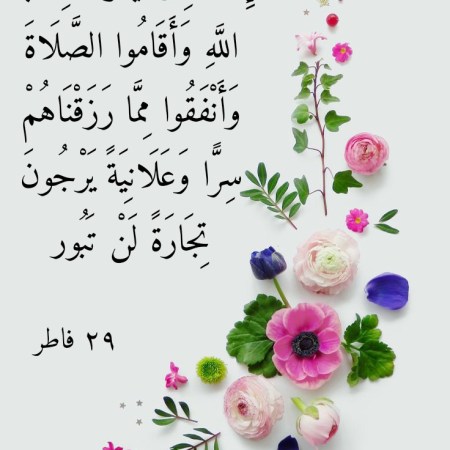 اللَّهِ وَأَقَامُوا الصَّلَاةَ
وَأَنْفَقُوا مِمَّا رَزَقْنَاهُمْ
سِرًّا وَعَلَانِيَةً يَرْجُونَ
تِجَارَةً لَنْ تَبُور
٢٩ فاطر